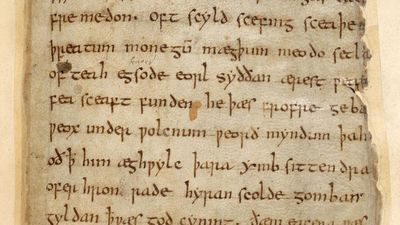 fremedon. oft scyld scefing sceaþe
þreatum monegū mægþum meodo setla
of teah egsode eorl syððan ærest ƿear
fea sceaft funden he þæs frofre geba
ƿeox under ƿolcnum ƿeorð myndum þah
oð ꝥ him æghƿylc þara ymb sittendra
ofer hron rade hyran scolde gomban
gyldan ꝥ ƿæs god cyning. ðæm eafera ƿæs